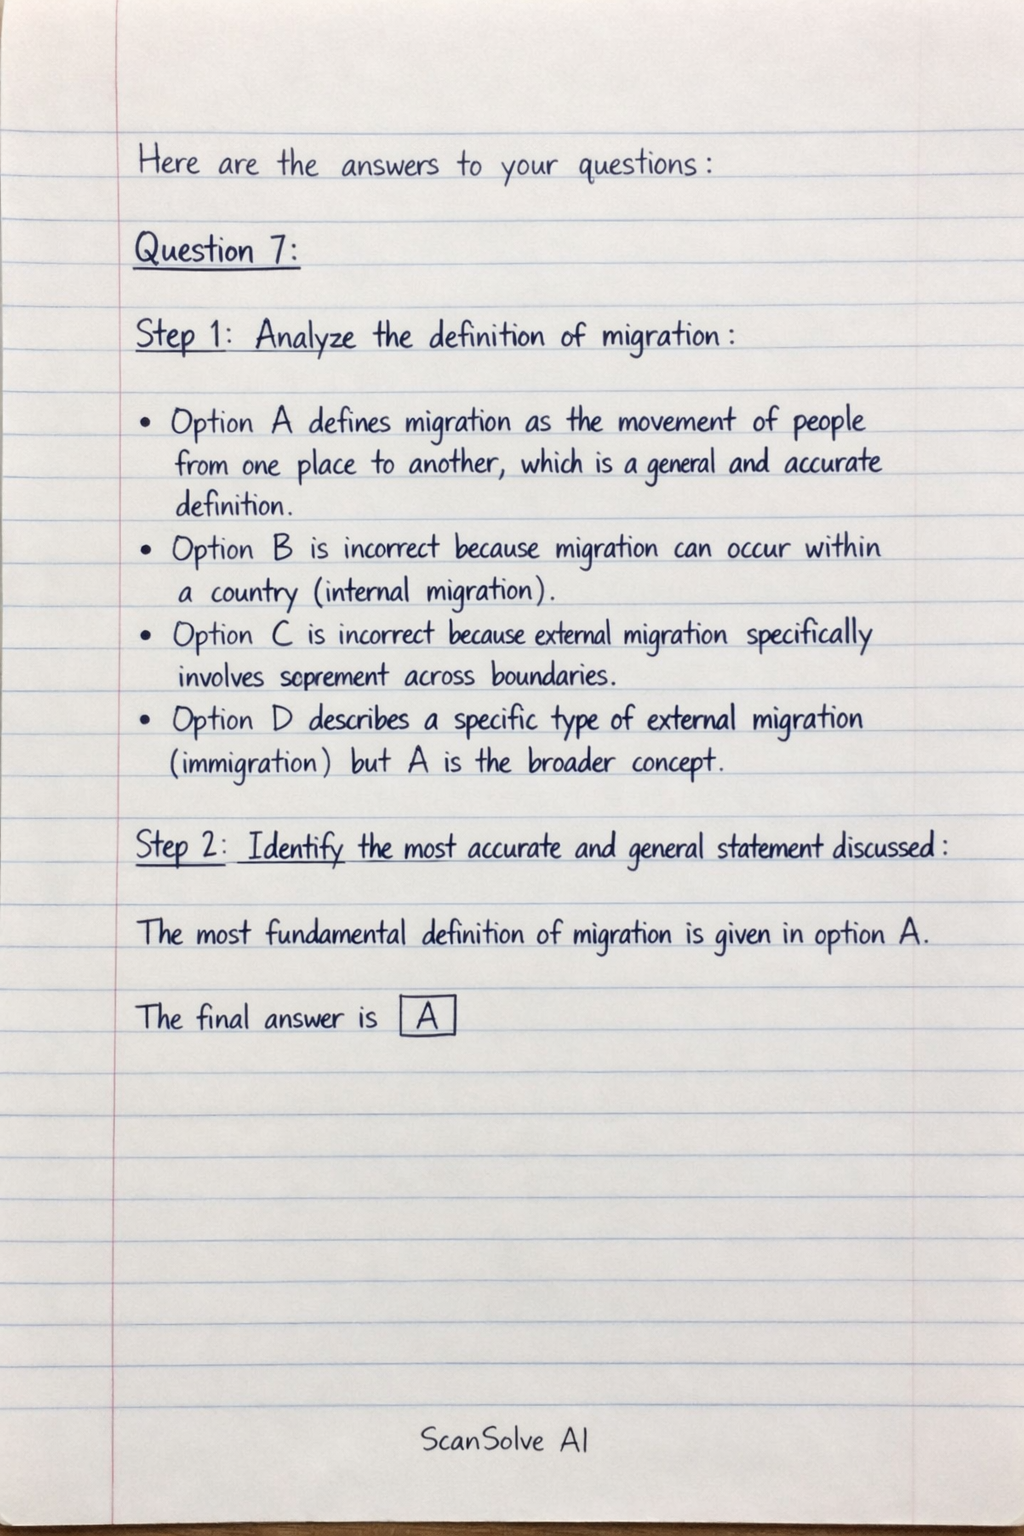 Here are the answers to your questions:
Question 7:
Step 1: Analyze the definition of migration:
• Option A defines migration as the movement of people
from one place to another, which is a general and accurate
definition.
• Option B is incorrect because migration can occur within
a country (internal migration).
• Option C is incorrect because external migration specifically
involves soprement across boundaries.
• Option D describes a specific type of external migration
(immigration) but A is the broader concept.
Step 2: Identify the most accurate and general statement discussed:
The most fundamental definition of migration is given in option A.
The final answer is A
ScanSolve AI